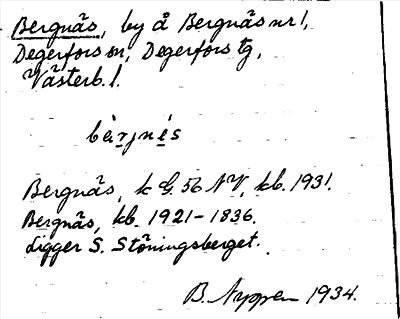 Bergnäs, by å Bergnäs nr 1,
Degerfors sn, Degerfors tg,
Västerb. l.
bèrjnés
Bergnäs, k G. 56 NV, kb. 1931.
Bergnäs, kb. 1921-1836.
Ligger S. Stöningsberget.
B. 1934.